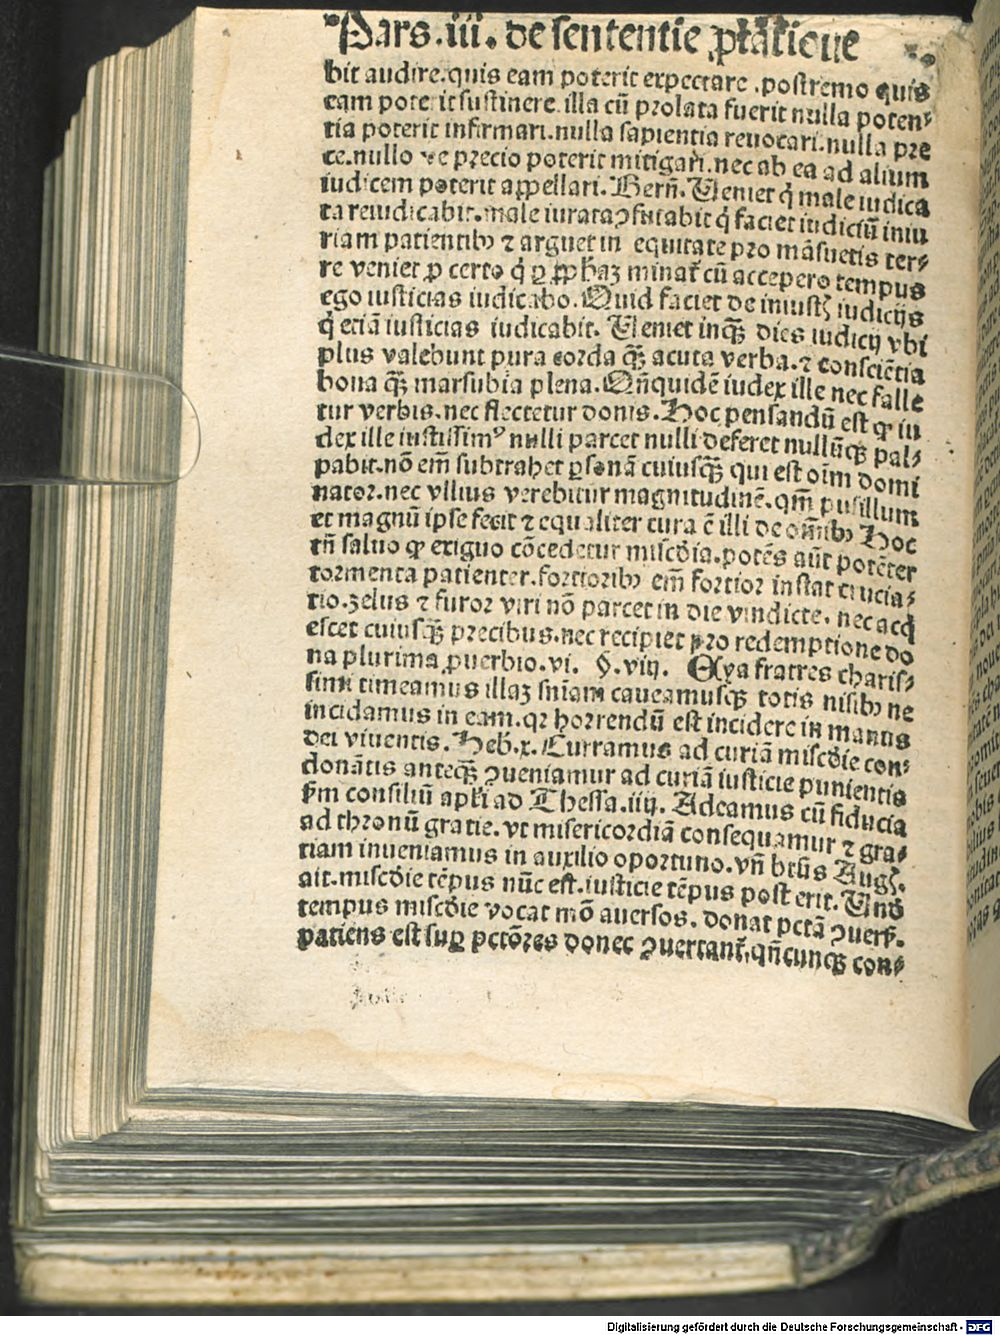 Pars .iii. de sententie ꝓlatione
bit audire. quis eam poterit expectare. postremo quis
eam poterit sustinere. illa cū prolata fuerit nulla poten⸗
tia poterit infirmari. nulla sapientia reuocari. nulla pre
ce. nullo ve precio poterit mitigari. nec ab ea ad alium
iudicem poterit appellari. Berñ. Veniet q̇ male iudica
ta reiudicabit. male iurata ꝯfutabit q̇ faciet iudiciū iniu
riam patientibꝫ ⁊ arguet in equitate pro māsuetis ter⸗
re veniet ꝓ certo q̇ ꝑ ꝓphaꝫ minat̄ cū accepero tempus
ego iusticias iudicabo. Quid faciet de iniustꝭ iudicijs
q̇ etiā iusticias iudicabit. Veniet inq̄ꝫ dies iudicij vbi
plus valebunt pura corda q̄ꝫ acuta verba. ⁊ consciētia
bona q̄ꝫ marsubia plena. Qn̄quidē iudex ille nec falle
tur verbis. nec flectetur donis. Hoc pensandū est ꝙ iu
dex ille iustissimꝰ nulli parcet nulli deferet nullūqꝫ pal⸗
pabit. nō em̄ subtrahet ꝑsonā cuiusq̄ꝫ qui est oīm domi
nator. nec vllius verebitur magnitudinē. qm̄ pusillum
et magnū ipse fecit ⁊ equaliter cura ē illi de om̄ibꝫ Hoc
tn̄ saluo ꝙ exiguo cōcedetur miscd̄ia. potēs aūt potēter
tormenta patienter. fortioribꝫ em̄ fortior instat crucia⸗
tio. zelus ⁊ furor viri nō parcet in die vindicte. nec acq̇
escet cuiusq̄ꝫ precibus. nec recipiet pro redemptione do
na plurima ꝓuerbio. vi. §. viij. Eya fratres charis⸗
simi timeamus illaꝫ sniam caueamusqꝫ totis nisibꝫ ne
incidamus in eam. qꝛ horrendū est incidere in manus
dei viuentis. Heb. x. Curramus ad curiā miscd̄ie con⸗
donātis anteq̄ꝫ ꝯueniamur ad curiā iusticie punientis
ẜm consiliū apl̄i ad Thessa. iiij. Adeamus cū fiducia
ad thronū gratie. vt misericordiā consequamur ⁊ gra⸗
tiam inueniamus in auxilio oportuno. vn̄ btūs Augꝭ.
ait. miscd̄ie tēpus nūc est. iusticie tēpus post erit. Vnd̄
tempus miscd̄ie vocat mō auersos. donat pctā ꝯuers̄.
patiens est suꝑ pctōres donec ꝯuertant̄. qn̄cunqꝫ con⸗
Digitalisierung gefördert durch die Deutsche Forschungsgemeinschaft - DFG